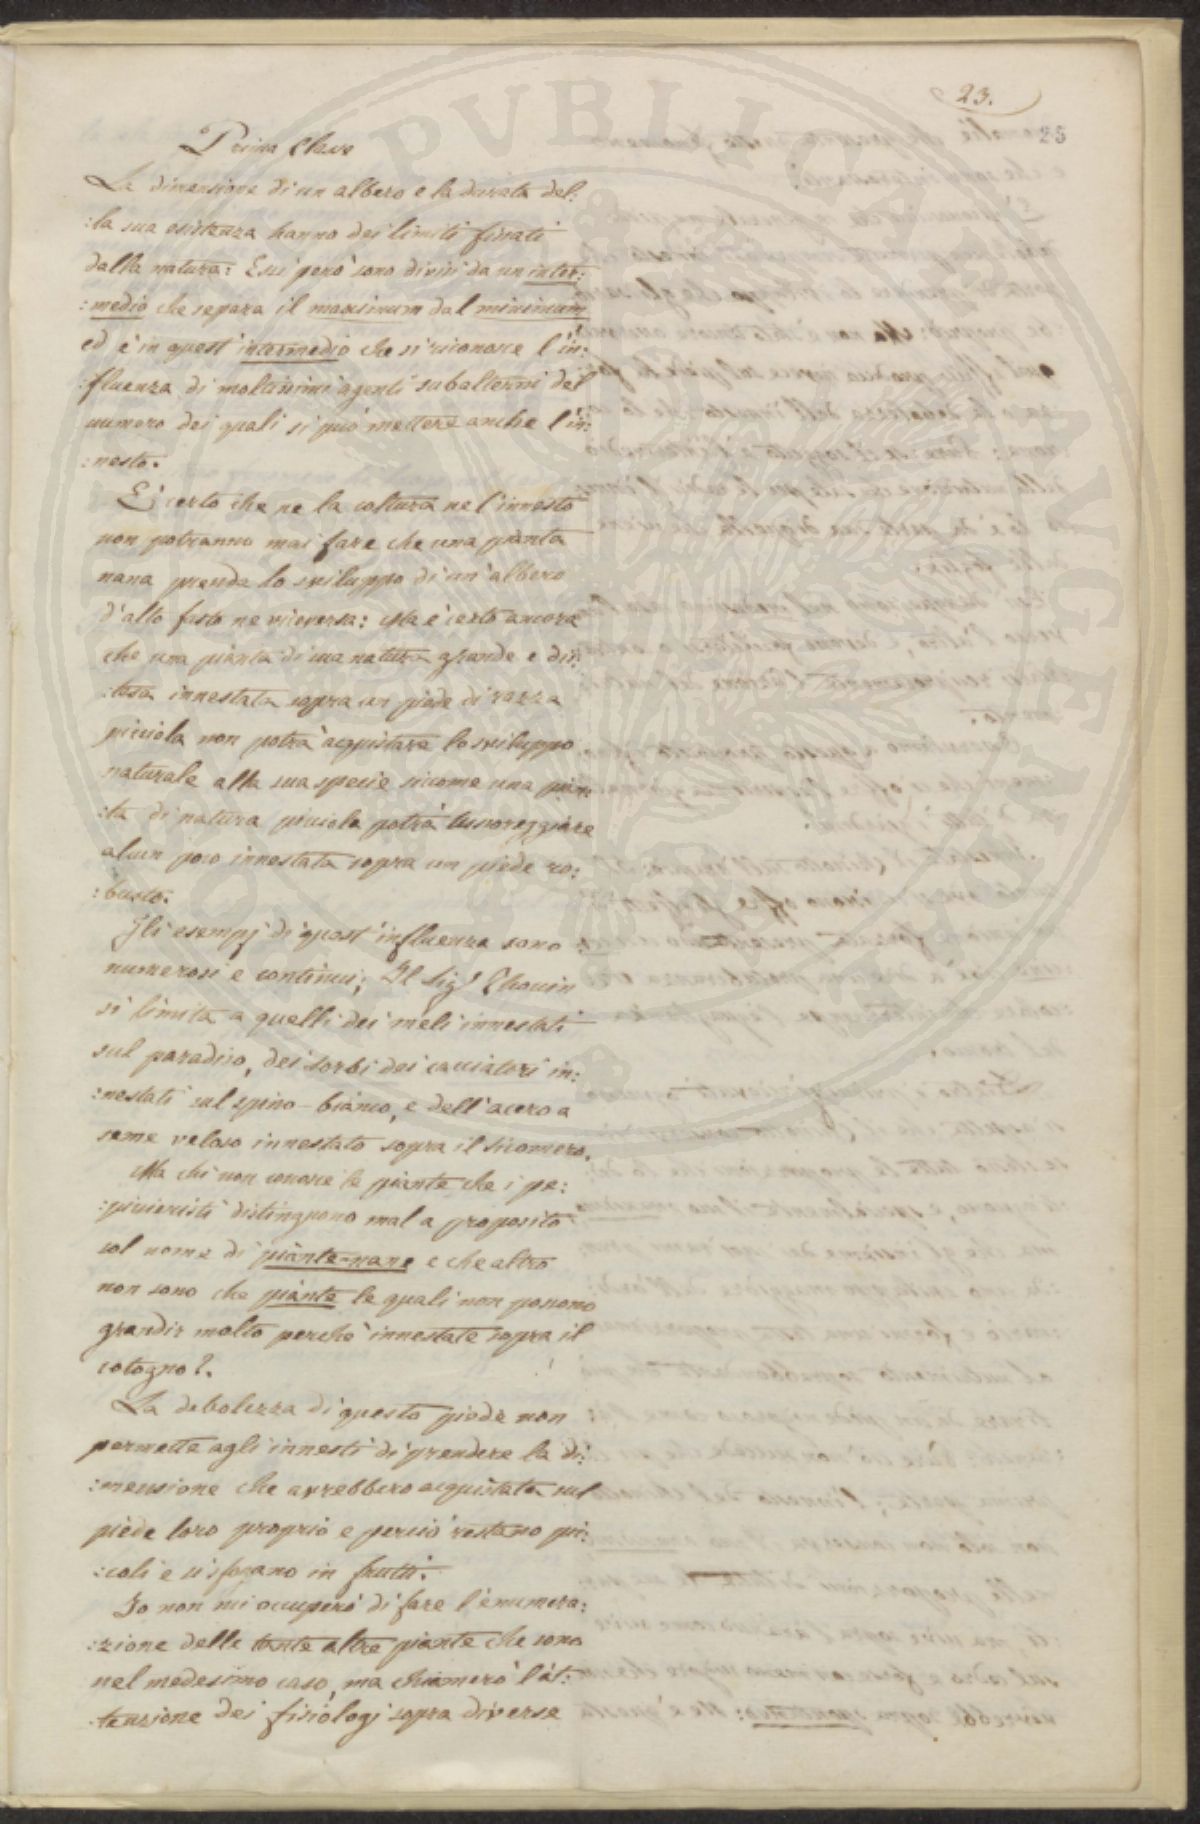 23.
25
Prima Classe
La dimensione di un albero e la durata del:
:la sua esistenza hanno dei limiti fissati
dalla natura: Essi però sono divisi da un inter:
:medio che separa il maximum dal minimum
ed è in quest'intermedio che si riconosce l'in:
:fluenza di moltissimi agenti subalterni del
numero dei quali si può mettere anche l'in:
:nesto.
E' certo che ne la coltura ne l'innesto
non potranno mai fare che una pianta
nana prenda lo sviluppo di un'albero
d'alto fusto ne viceversa: Ma è certo ancora
che una pianta di sua natura grande e dis:
:tesa innestata sopra un piede di razza
picciola non potrà acquistare lo sviluppo
naturale alla sua specie siccome una pian:
:ta di natura picciola potrà lussoreggiare
alcun poco innestata sopra un piede ro:
:busto.
Gli esempj di quest'influenza sono
numerosi e continui; Il Sig.r Thouin
si limita a quelli dei meli innestati
sul paradiso, dei sorbi dei cacciatori in:
:nestati sul spino-bianco, e dell'acero a
seme veloso innestato sopra il sicomoro.
Ma chi non conosce le piante che i pe:
:pinieristi distinguono mal a proposito
col nome di piante-nane e che altro
non sono che piante le quali non possono
grandir molto perchè innestate sopra il
cotogno?.
La debolezza di questo piede non
permette agli innesti di prendere la di:
:mensione che avrebbero acquistata sul
piede loro proprio e perciò restano pi:
:coli e si sfogano in frutti.
Io non mi occuperò di fare l'enumera:
:zione delle tante altre piante che sono
nel medesimo caso, ma chiamerò l'at:
:tenzione dei fisiologi sopra diverse
PVBLICA AVGEN